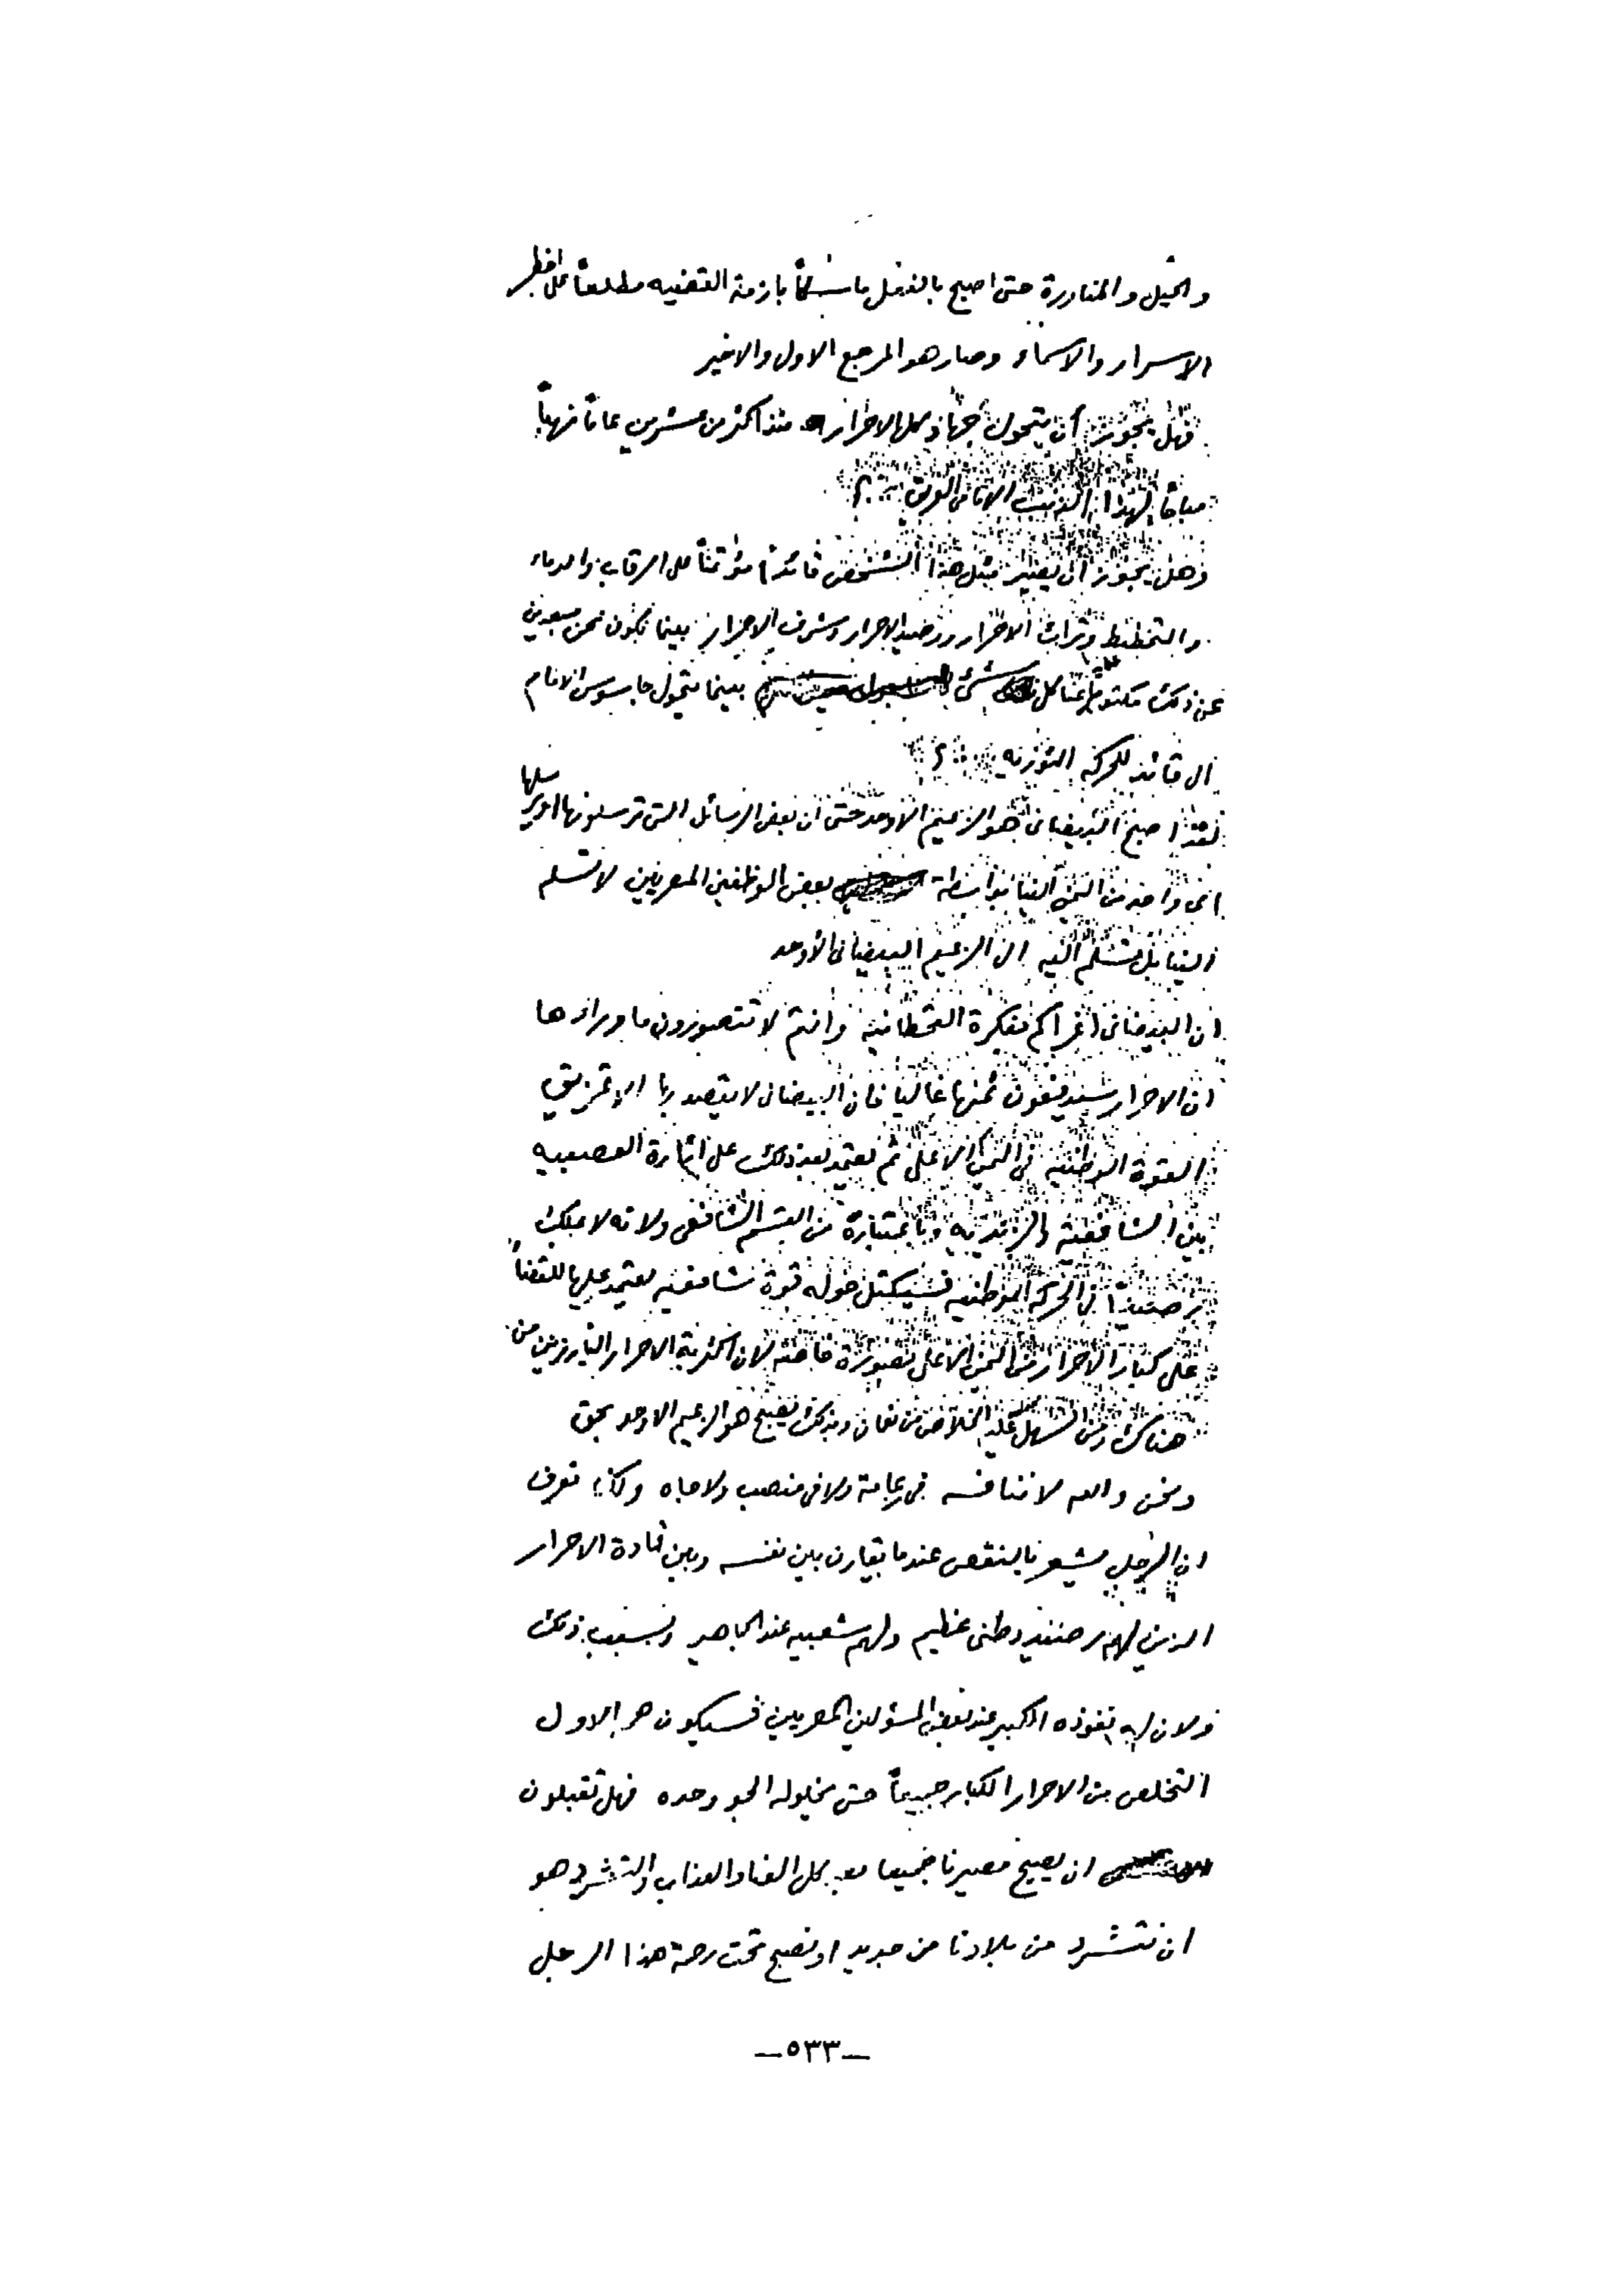 والحيل والمناورة حتى اصبح بالفعل ماسكاً بازمة القضيه مطلعاً على اخطر
الاسرار والاسماء وصار هو المرجع الاول والاخير
فهل يجوز أن يتحول جهاد كل الاحرار منذ اكثر من عشرين عاماً نهباً
مباحاً لهذا
وهل يجوز أن يعتبر مثل هذا الشخص قائداً مؤتمناً على الرقاب والدماء
والتخطيط وتراث الاحرار ورصيد الاحرار وشرف الاحرار بينما نكون نحن مبعدين
عن ذلك مكتوماً عنا كل شئ بينما يتحول جاسوس الامام
الى قائد للحركه الثوريه ؟
لقد اصبح البيضانى هو الزعيم الاوحد حتى ان بعض الرسائل التى ترسلونها او يرسلها
اى واحد من اليمن الينا بواسطة بعض الموظفين المصريين لا تسلم
الينا بل تسلم اليه الى الزعيم البيضانى الأوحد
ان البيضانى اغراكم بفكرة القحطانيه وانتم لا تتصورون ما وراءها
ان الاحرار سيدفعون ثمنها غاليا فان البيضانى لا يقصد بها الا تمزيق
القوة الوطنيه فى اليمن الاعلى ثم يعتمد بعد ذلك على اثارة العصبيه
بين الشافعيه والزيديه وباعتباره من القسم الشافعى ولانه لا يملك
رصيداً فى الحركه الوطنيه فسيكتل حوله قوة شافعيه يعتمد عليها للقضاء
على كبار الاحرار من اليمن الاعلى بصورة خاصه لان اكثرية الاحرار البارزين من
هناك ومن السهل عليه الخلاص من نعمان وبذلك يصبح هو الزعيم الاوحد بحق
ونحن والله لا ننافسه فى زعامة ولا فى منصب ولا جاه ولكنا نعرف
ان الرجل يشعر بالنقص عندما يقارن بين نفسه وبين قادة الاحرار
الذين لهم رصيد وطنى عظيم ولهم شعبيه عند الجماهير وبسبب ذلك
ولان له نفوذه الكبير عند بعض المسؤلين المصريين فسيكون همه الاول
التخلص من الاحرار الكبار جميعاً حتى يخلو له الجو وحده فهل تقبلون
ان يصبح مصيرنا جميعا بعد كل العناء والعذاب والتشرد هو
ان نتشرد من بلادنا من جديد او نصبح تحت رحمة هذا الرجل
—٥٣٣—